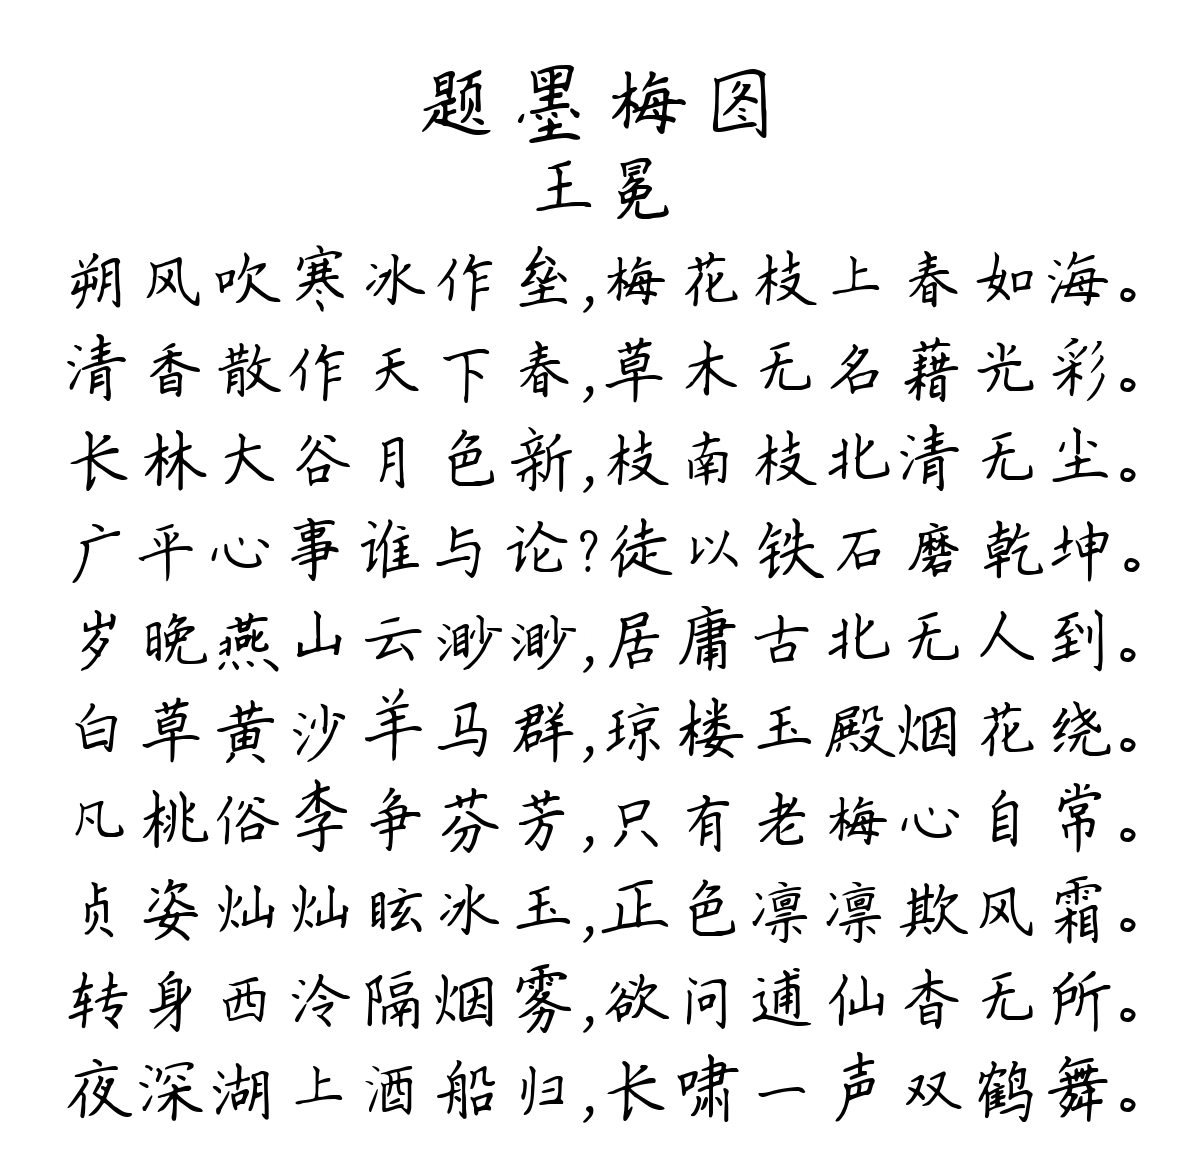 题墨梅图
王冕
朔风吹寒冰作垒,梅花枝上春如海。
清香散作天下春,草木无名藉光彩。
长林大谷月色新,枝南枝北清无尘。
广平心事谁与论?徒以铁石磨乾坤。
岁晚燕山云渺渺,居庸古北无人到。
白草黄沙羊马群,琼楼玉殿烟花绕。
凡桃俗李争芬芳,只有老梅心自常。
贞姿灿灿眩冰玉,正色凛凛欺风霜。
转身西泠隔烟雾,欲问逋仙杳无所。
夜深湖上酒船归,长啸一声双鹤舞。